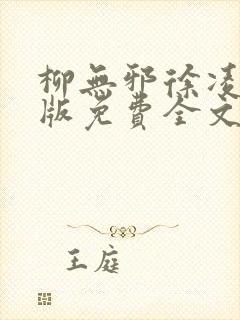 柳無邪徐凌
版免費全文
王庭